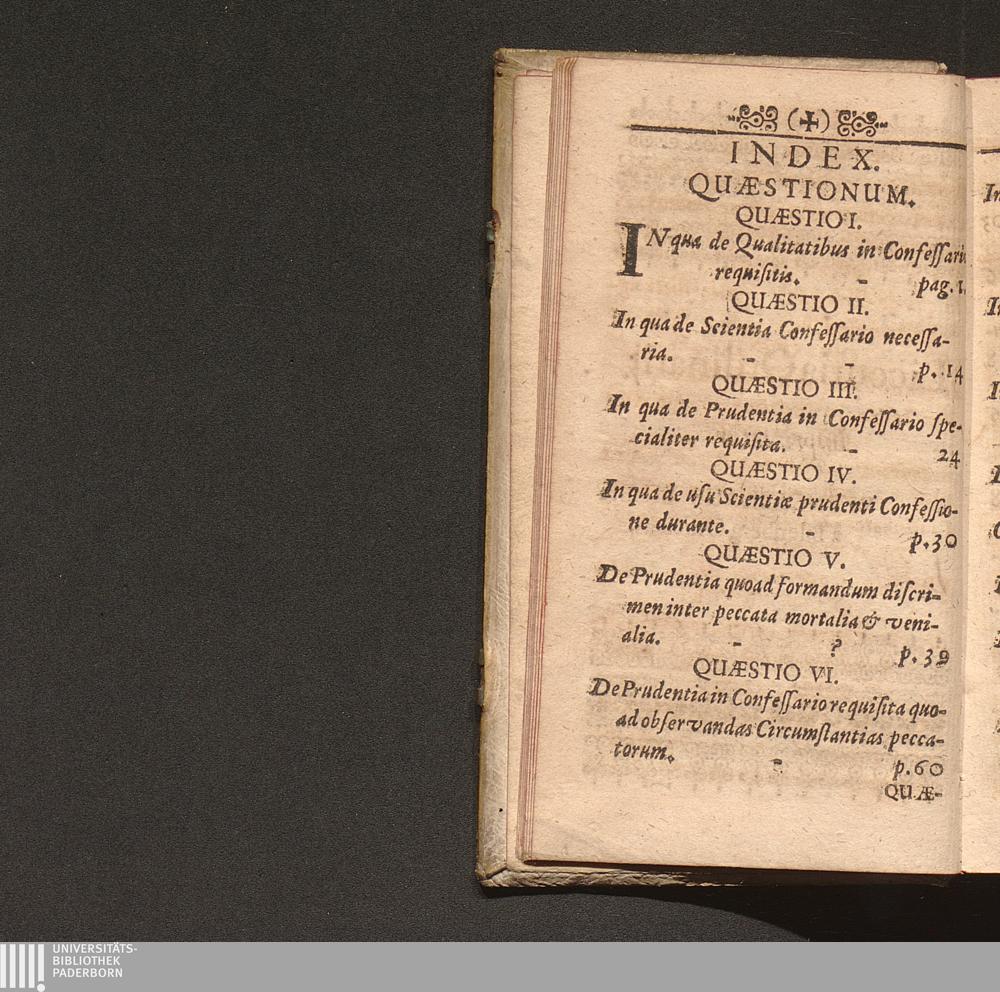 (✠)
INDEX.
QUÆSTIONUM.
QUÆSTIO I.
IN qua de Qualitatibus in Confeſſari
requiſitis. - pag. 1.
QUÆSTIO II.
In qua de Scientia Confeſſario neceſſa-
ria. - - p. 14
QUÆSTIO III.
In qua de Prudentia in Confeſſario ſpe-
cialiter requiſita. - 24
QUÆSTIO IV.
In qua de uſu Scientiæ prudenti Confeſſio-
ne durante. - p. 30
QUÆSTIO V.
De Prudentia quoad formandum diſcri-
men inter peccata mortalia & veni-
alia. - ? p. 39
QUÆSTIO VI.
De Prudentia in Confeſſario requiſita quo-
ad obſervandas Circumſtantias pecca-
torum. - p. 60
QUÆ-
UNIVERSITÄTS-
BIBLIOTHEK
PADERBORN